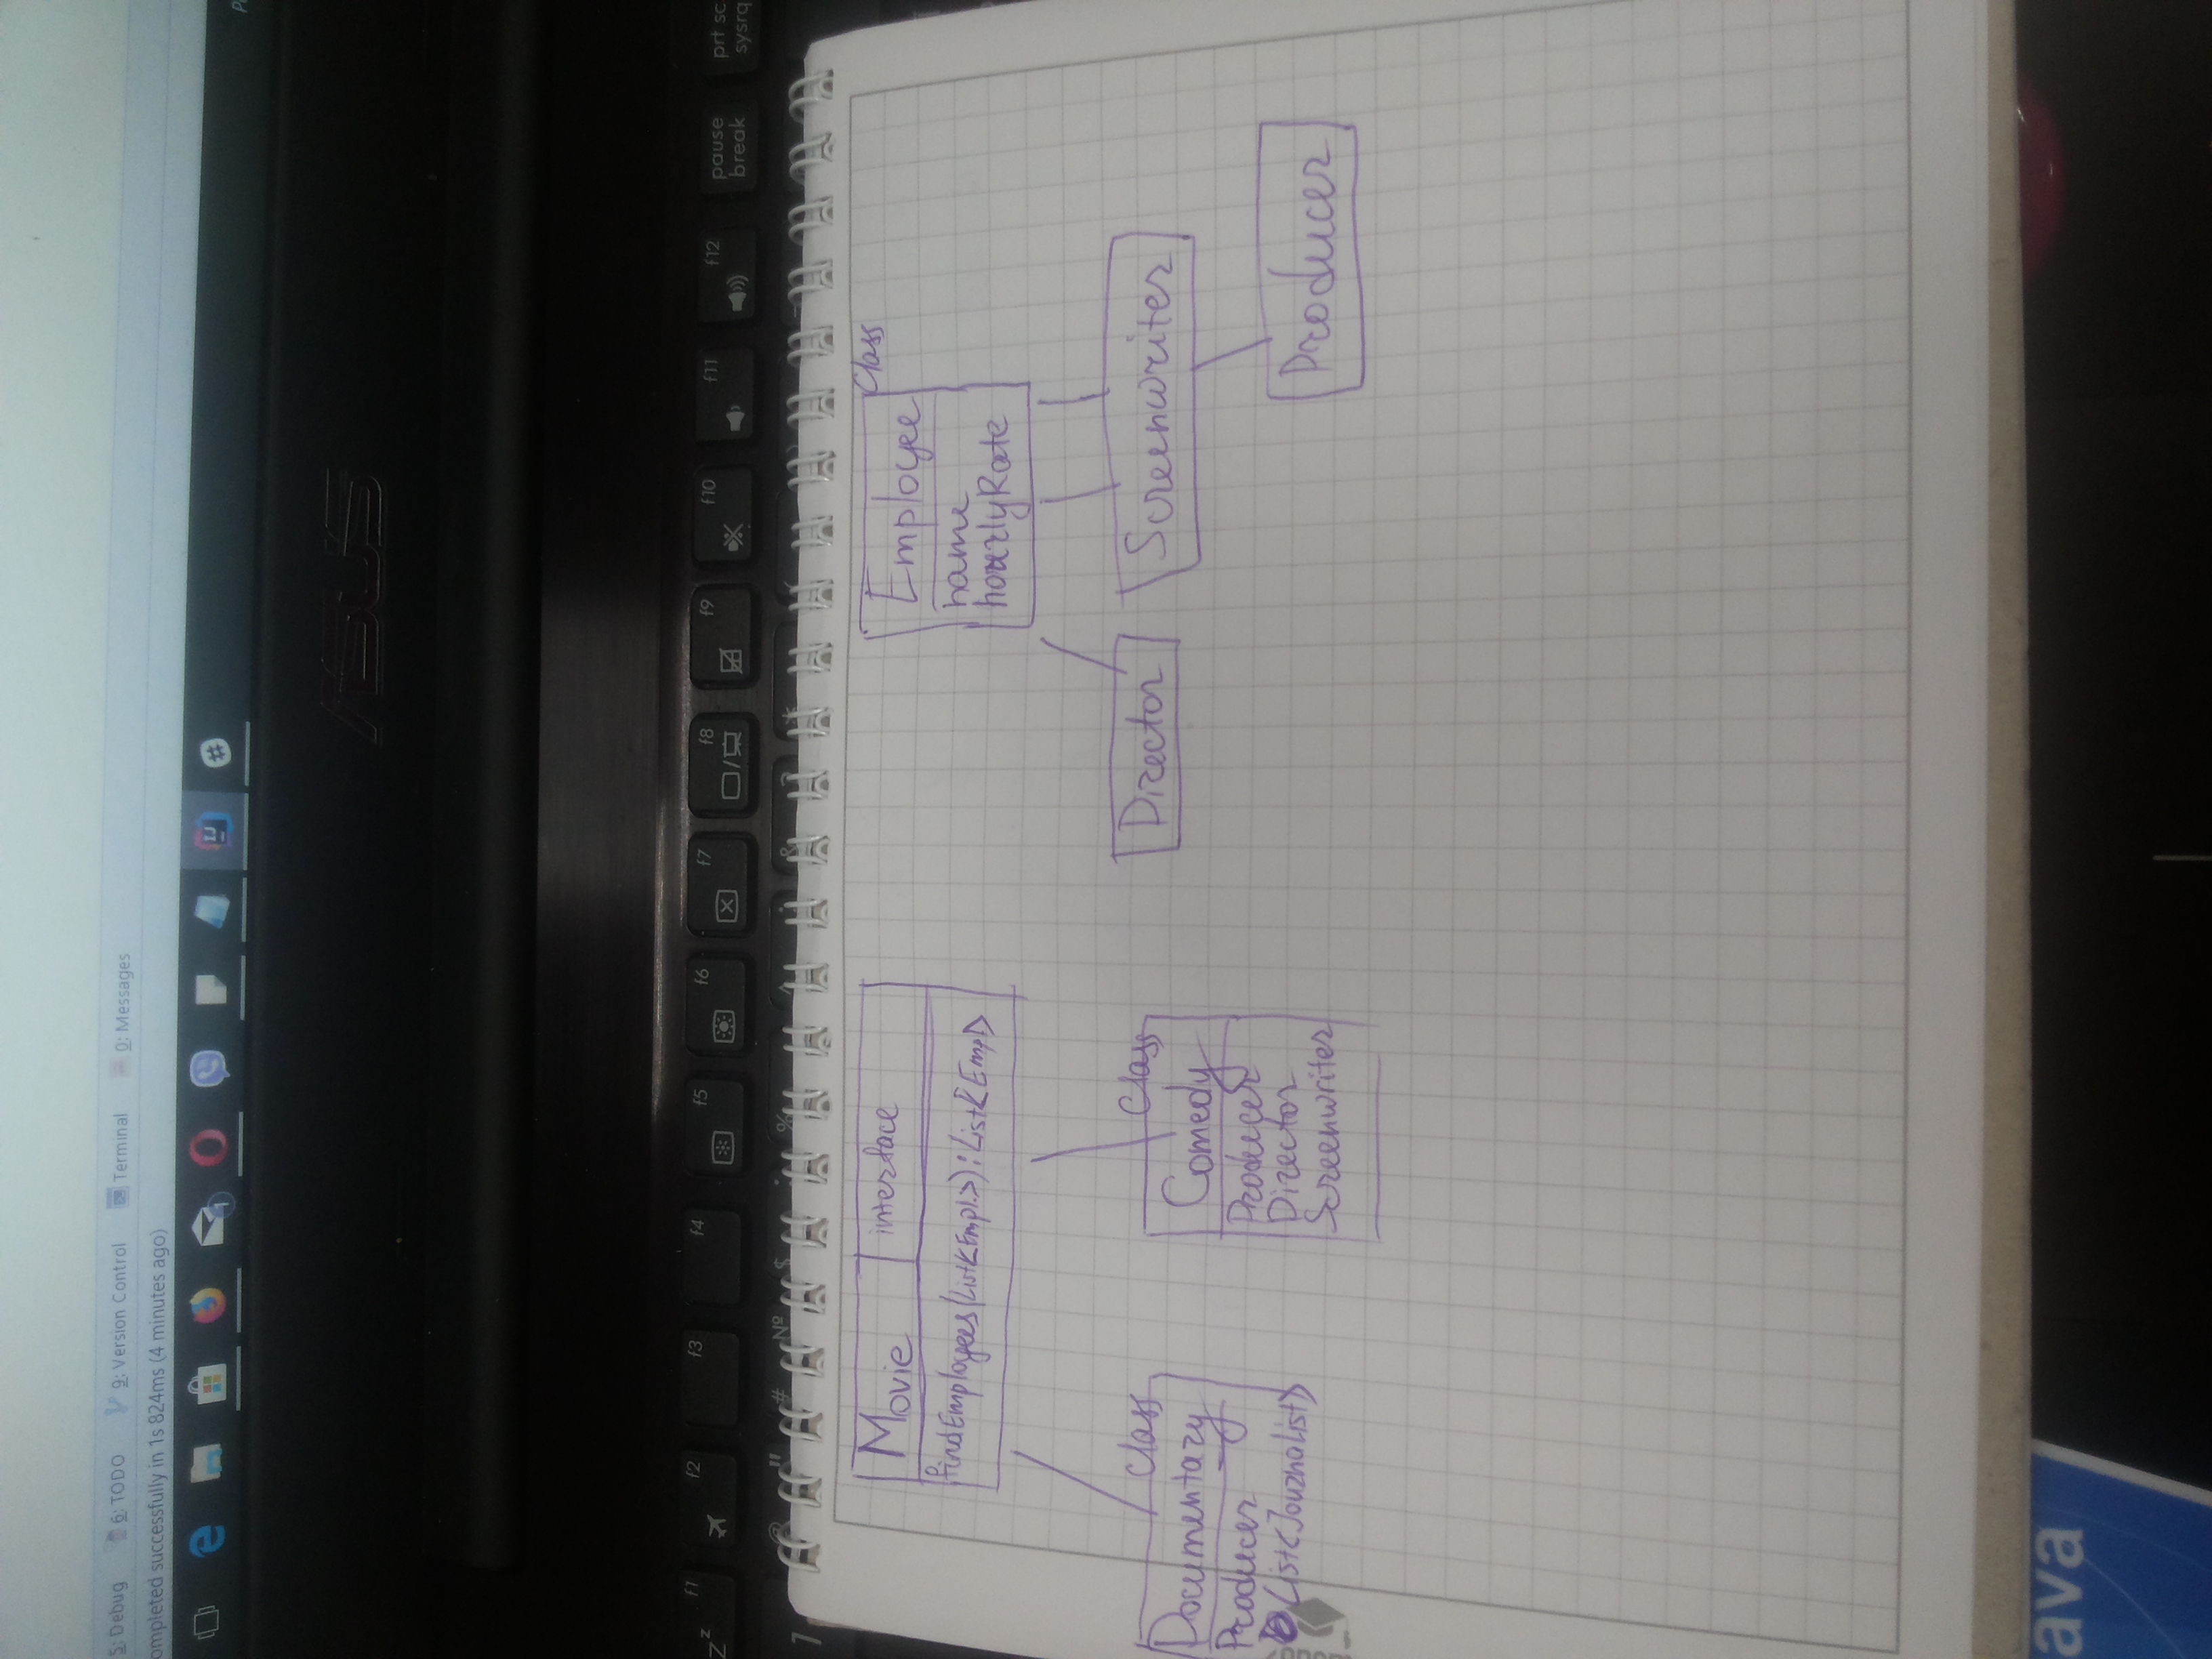 5: Debug 6: TODO 9: Version Control Terminal 0: Messages
ompleted successfully in 1s 824ms (4 minutes ago)
1
IJ
ASUS
f1 f2 f3 f4 f5 f6 f7 f8 f9 f10 f11 f12 pause break prt sc sysrq
Zzz
@ " # № $ ; % ^ : & ? *
Movie interface
findEmployees(List<Empl.>):List<Empl>
Class
Employee
name
hourlyRate
Class
Documentary
Producer
List<Journalist>
Class
Comedy
Producer
Director
Screenwriter
Director
Screenwriter
Producer
ava